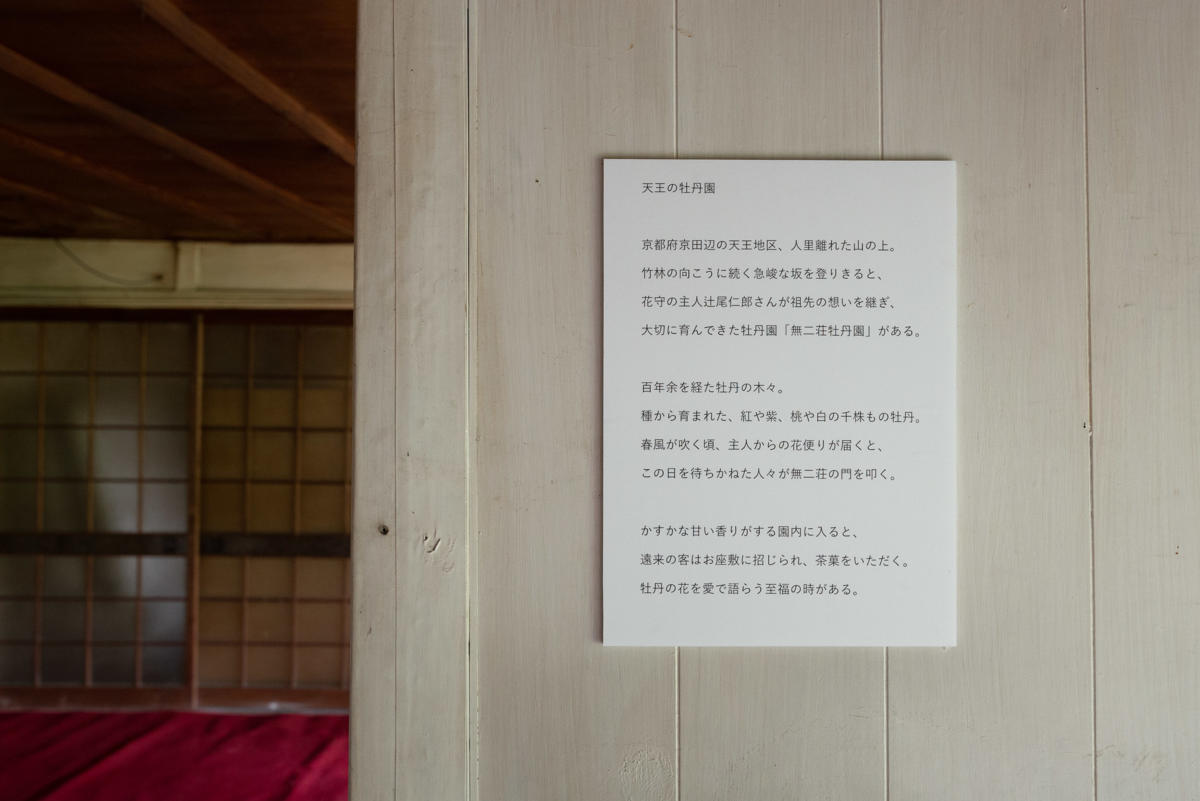 天王の牡丹園
京都府京田辺の天王地区、人里離れた山の上。
竹林の向こうに続く急峻な坂を登りきると、
花守の主人辻尾仁郎さんが祖先の想いを継ぎ、
大切に育んできた牡丹園「無二荘牡丹園」がある。
百年余を経た牡丹の木々。
種から育まれた、紅や紫、桃や白の千株もの牡丹。
春風が吹く頃、主人からの花便りが届くと、
この日を待ちかねた人々が無二荘の門を叩く。
かすかな甘い香りがする園内に入ると、
遠来の客はお座敷に招じられ、茶菓をいただく。
牡丹の花を愛で語らう至福の時がある。